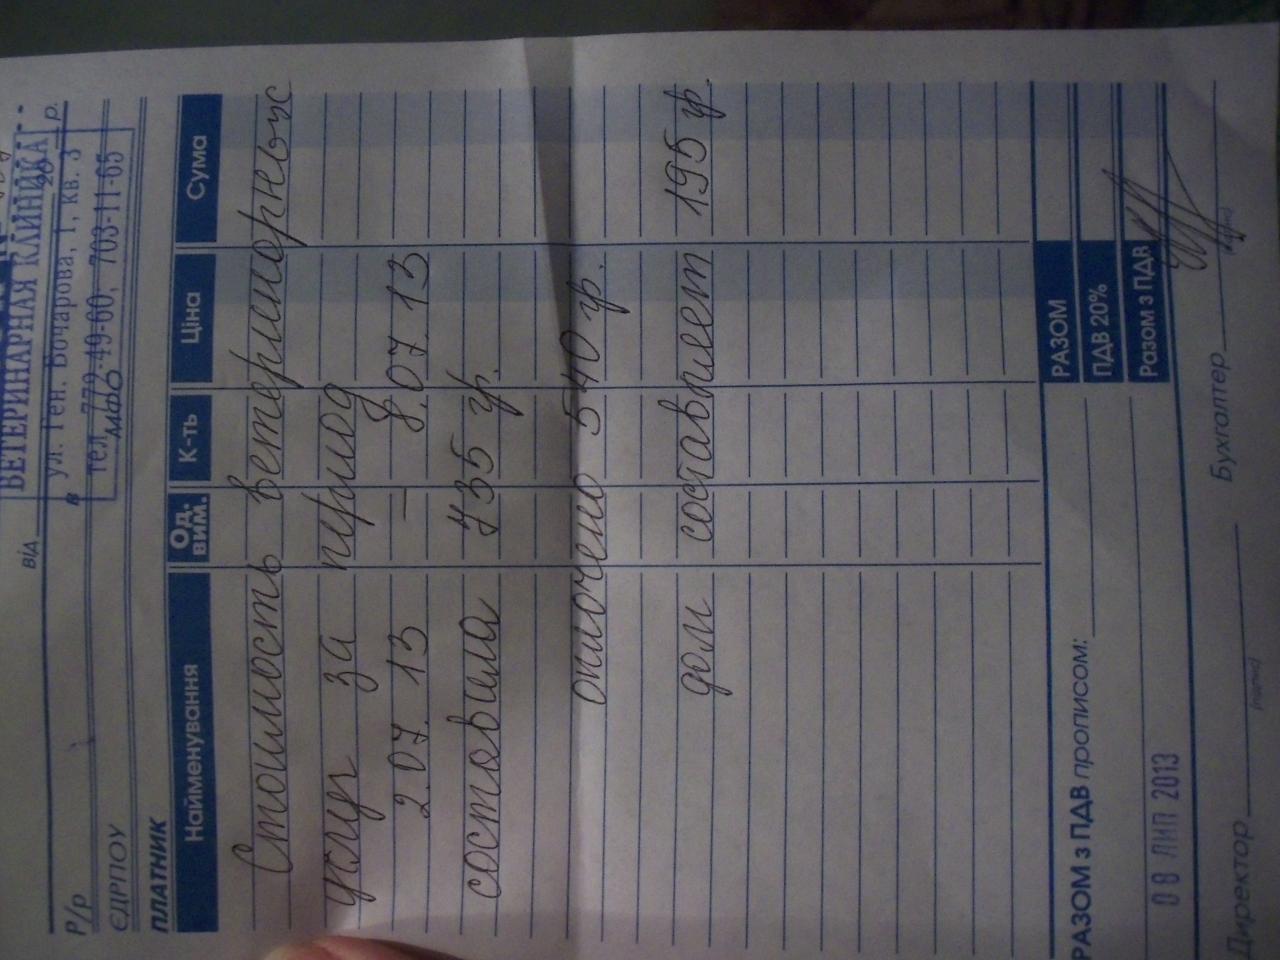 ВЕТЕРИНАРНАЯ КЛИНИКА
від 20 р.
ул. Ген. Бочарова, 1, кв. 3
Р/р в
тел. 772-49-60, 703-11-65
МФО
ЄДРПОУ
ПЛАТНИК
Найменування Од. вим. К-ть Ціна Сума
Стоимость ветеринарных
услуг за период
2.07.13 — 8.07.13
составила 735 гр.
оплочено 540 гр.
долг составляет 195 гр.
РАЗОМ
ПДВ 20%
РАЗОМ з ПДВ прописом: Разом з ПДВ
08 ЛИП 2013
Директор Бухгалтер
(підпис) (підпис)